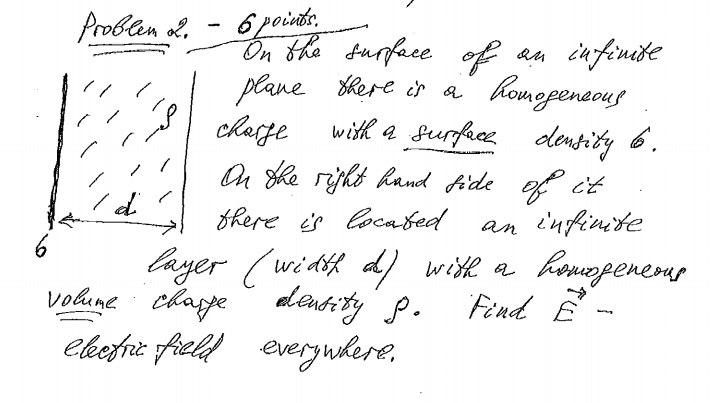 Problem 2. - 6 points.
On the surface of an infinite
plane there is a homogeneous
charge with a surface density б.
On the right hand side of it
there is located an infinite
layer (width d) with a homogeneous
volume charge density ρ. Find E⃗ -
electric field everywhere.
ρ
d
б